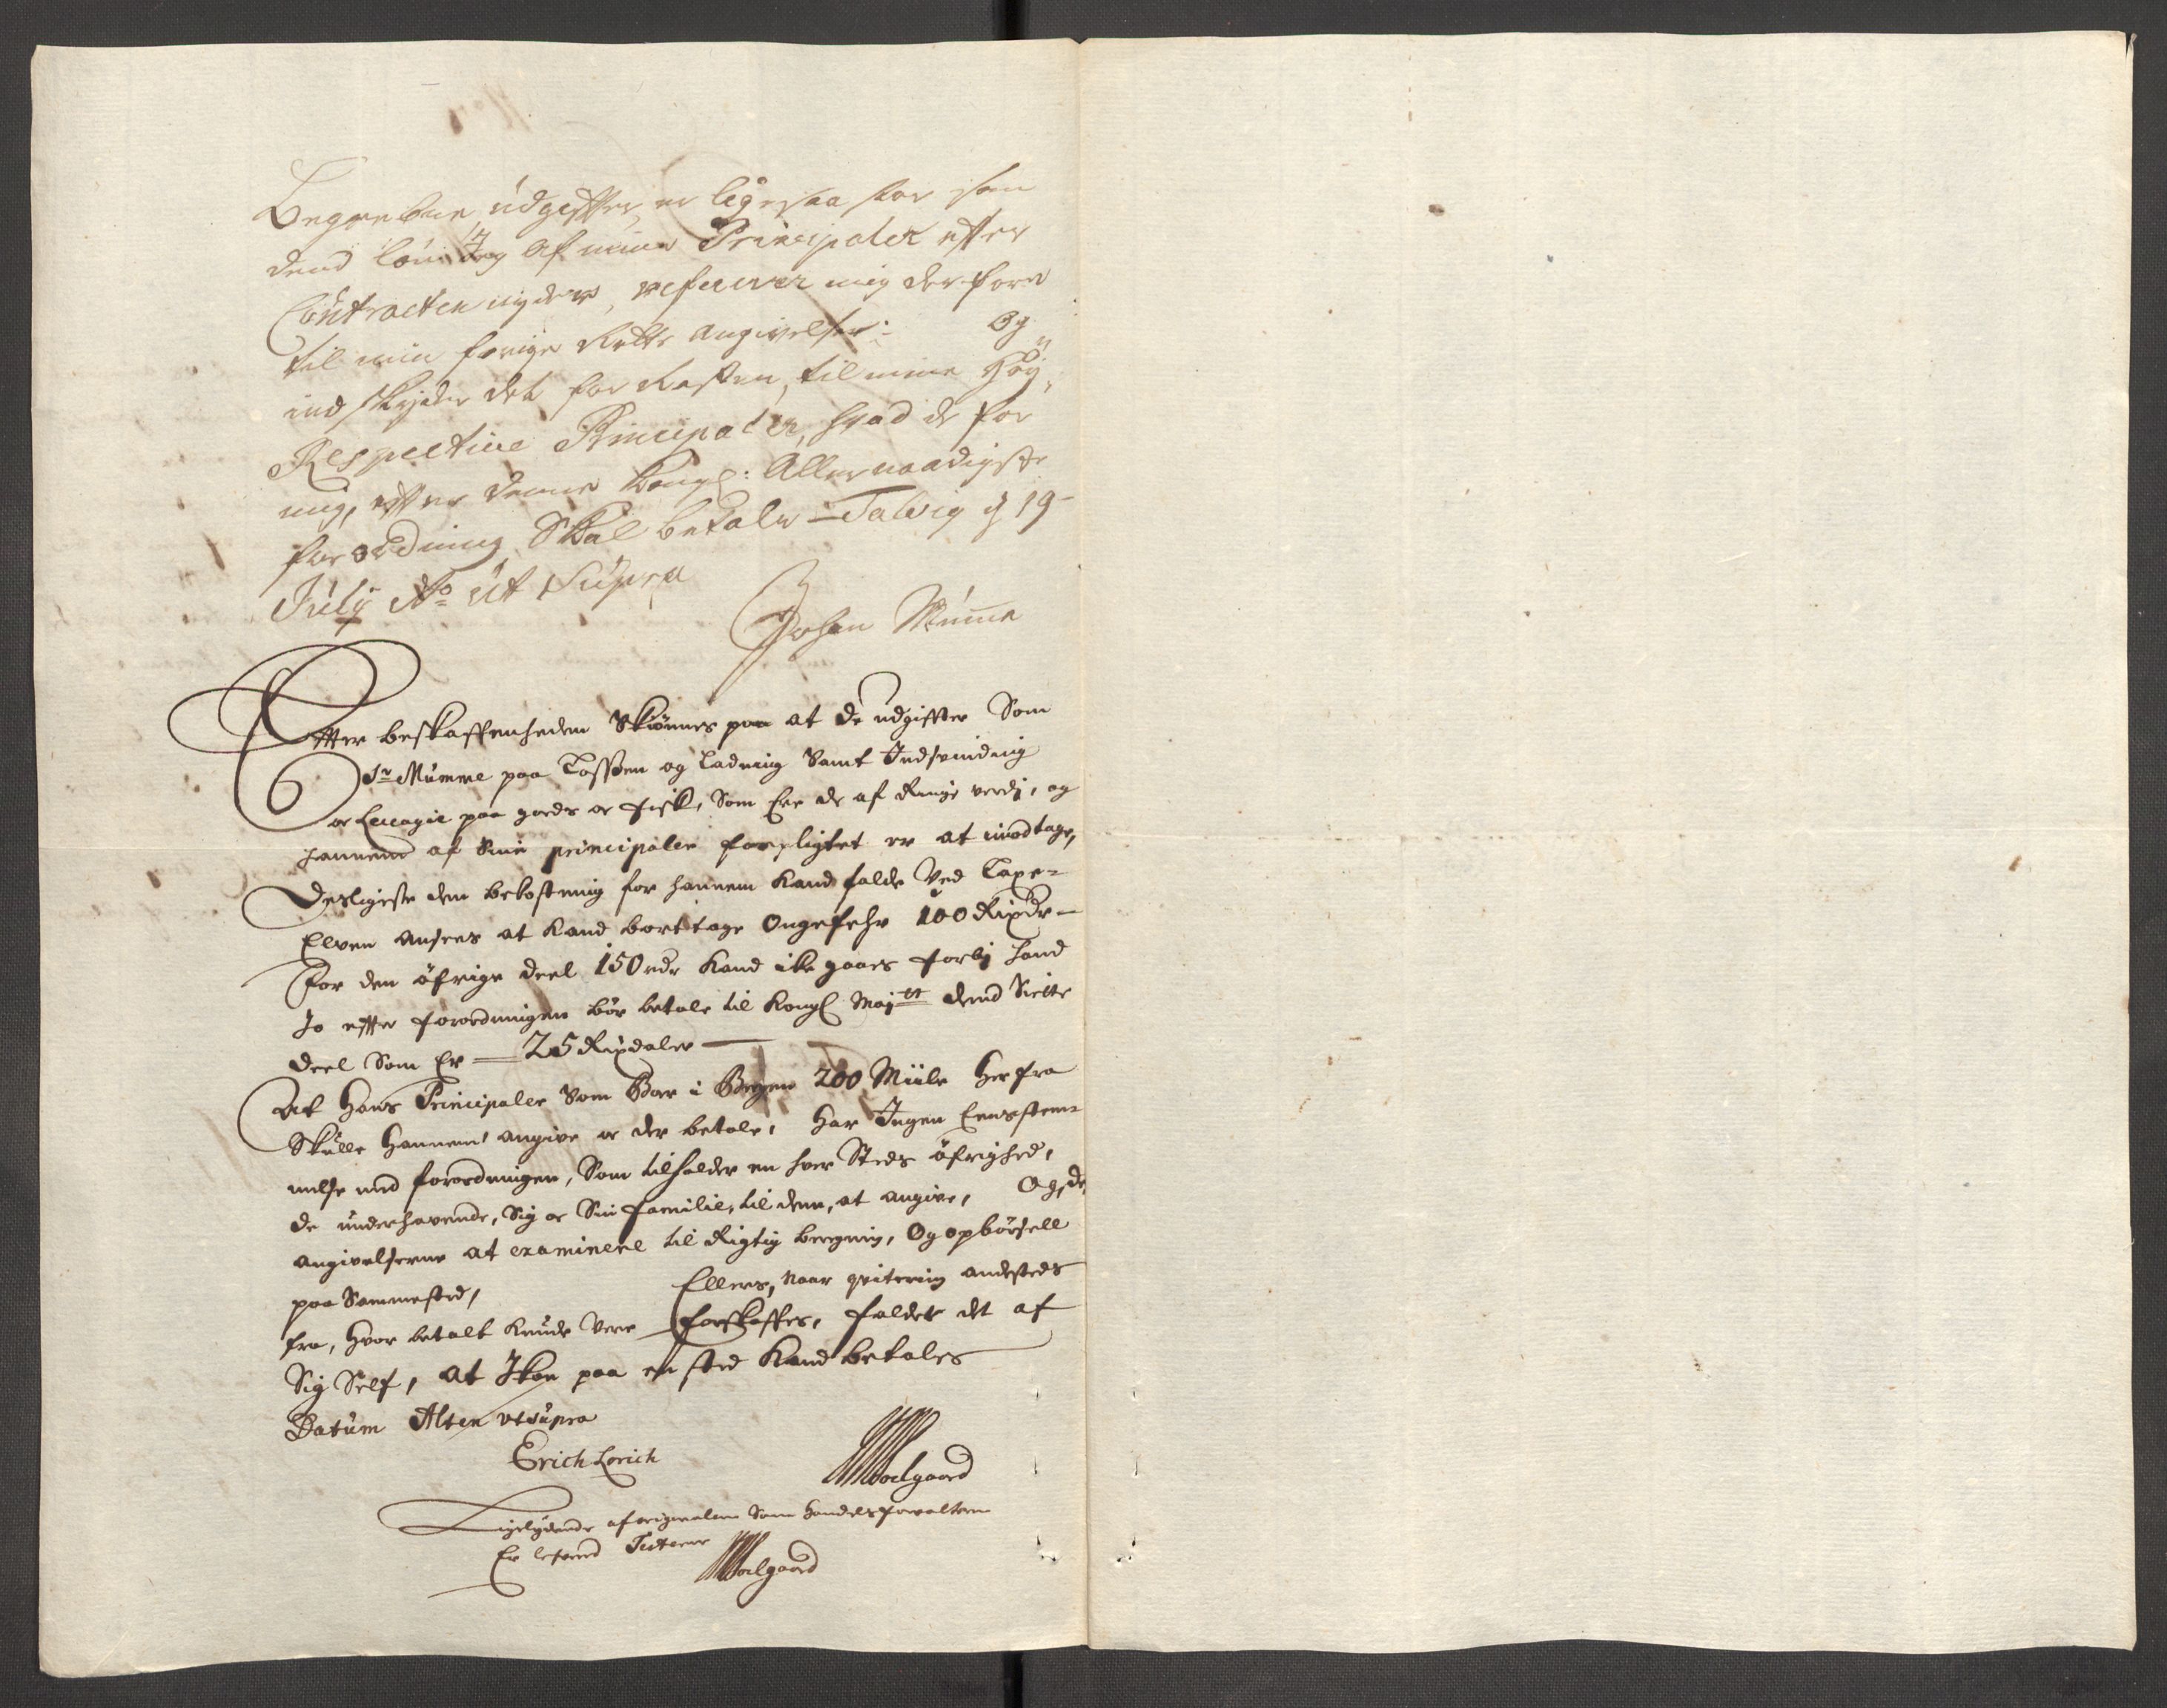 Begrebne udgiffter, er ligesaa stor som
dend löning Jeg af mine Principaler effter
Contracten nyder, refererer mig derfore
til min forige Rette angivelse: Og
indskyder det for Resten, til mine Høy
Respective Principaler, hvad de for
mig, effter denne Kongl: Allernaadigste
forordning Skal betale Talvig d 19
July Ao ut Supra
Johan Mumme
Effter beskaffenheden Skiønnes paa at de udgiffter Som
Sr Mumme paa Losssen og Ladning Samt Indsvinding
og Leccagie paa goeds og fisk, Som Ere de af Ringe verdj, og
hannem af Sine principaler forpligtet er at imodtage,
Desligeste den bekostning for hannem kand falde Ved Laxe-
Elven ansees at kand borttage Ongefehr 100 Rixdr
For den öfrige deel 150 rdr kand ike gaaes forbj hand
Jo effter forordningen bör betale til Kongl Majtt dend Siette
deel Som Er 25 Rixdaler
At Hans Principaler Som Boer i Bergen 200 Miile Herfra
Skulle Hannem angive og der betale, Har Ingen Eensstem-
melse med forordningen, Som tilholder en hver Steds öfrighed,
de underhavende, Sig og Sin familie, til dem, at angive, Og, de
angivelserne at examinere til Rigtig beregning, Og opbörsell
paa Sammested, Ellers, naar qvitering andesteds
fra, hvor betalt kunde Vere forskaffes, falder det af
Sig Self, at Ikon paa eet sted kand betales
Datum Alten ut supra
Erich Lorich
Woelgaard
Ligelydende af originalen Som Handelsforvalteren
Er leverd Testerer
Woelgaard